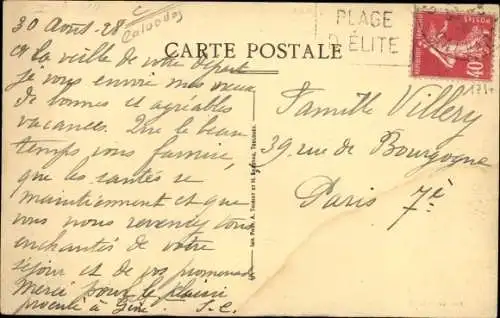 30 Août - 28
Calvados
CARTE POSTALE
PLAGE
D'ÉLITE
POSTES
40
A la veille de votre départ
je vous envoie mes vœux
de bonnes et agréables
vacances. Que le beau
temps vous favorise,
que les santés se
maintiennent et que
vous nous reveniez tous
enchantés de votre
séjour et de vos promenades
Merci pour le plaisir
procuré à S.C.
Famille Villery
39 rue de Bourgogne
Paris 7è